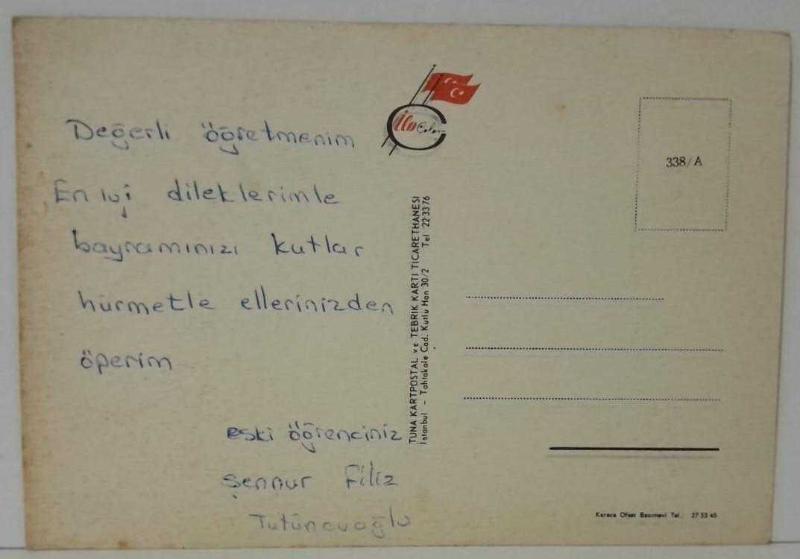 Değerli öğretmenim
En iyi dileklerimle
bayramınızı kutlar
hürmetle ellerinizden
öperim
eski öğrenciniz
Şennur Filiz
Tütüncüoğlu
TUNA KARTPOSTAL ve TEBRİK KARTI TİCARETHANESİ
İstanbul - Tahtakale Cad. Kutlu Han 30/2 Tel 22 33 76
338/A
Karaca Ofset Basımevi Tel.: 27 53 45